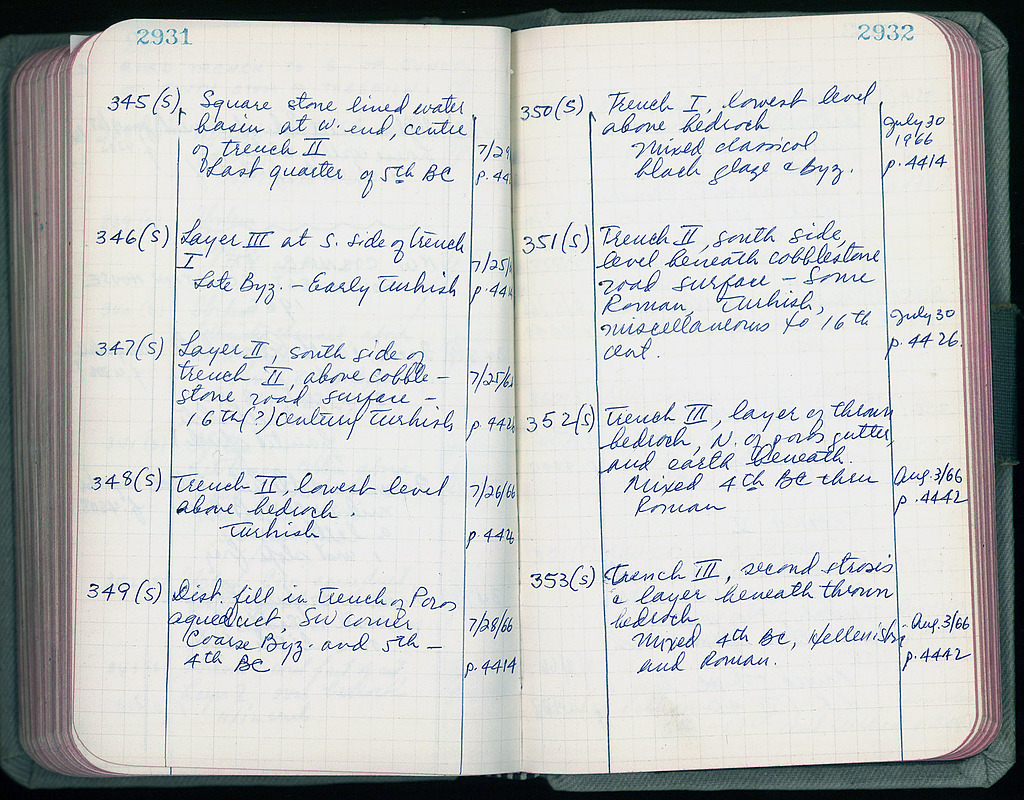 2931
345(S) Square stone lined water
basin at W. end, centre
of trench II 7/29
Last quarter of 5th BC p. 44
346(S) Layer III at S. side of trench
I 7/25/
Late Byz. - Early Turkish p. 44
347(S) Layer II, south side of
trench II, above cobble- 7/25/6
stone road surface -
16th(?) century Turkish p. 442
348(S) Trench II, lowest level 7/26/66
above bedrock.
Turkish p. 442
349(S) Dist. fill in trench of Poros
aqueduct, SW corner 7/28/66
Coarse Byz. and 5th -
4th BC p. 4414
2932
350(S) Trench I, lowest level
above bedrock July 30
Mixed classical 1966
black glaze & Byz. p. 4414
351(S) Trench II, south side,
level beneath cobblestone
road surface - Some
Roman, Turkish, July 30
miscellaneous to 16th p. 4426.
cent.
352(S) Trench III, layer of thrown
bedrock, N. of poros gutter,
and earth beneath.
Mixed 4th BC thru Aug. 3/66
Roman p. 4442
353(S) Trench III, second strosis
& layer beneath thrown
bedrock Aug. 3/66
Mixed 4th BC, Hellenistic
and Roman. p. 4442